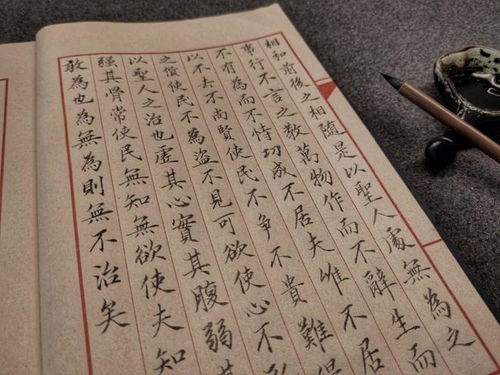 相和前後之相隨是以聖人處無為之
事行不言之教萬物作而不辭生而
不有為而不恃功成不居夫唯不居
以不去不尚賢使民不爭不貴難得
之貨使民不為盜不見可欲使心不
以聖人之治也虛其心實其腹弱其
強其骨常使民無知無欲使夫知
敢為也為無為則無不治矣